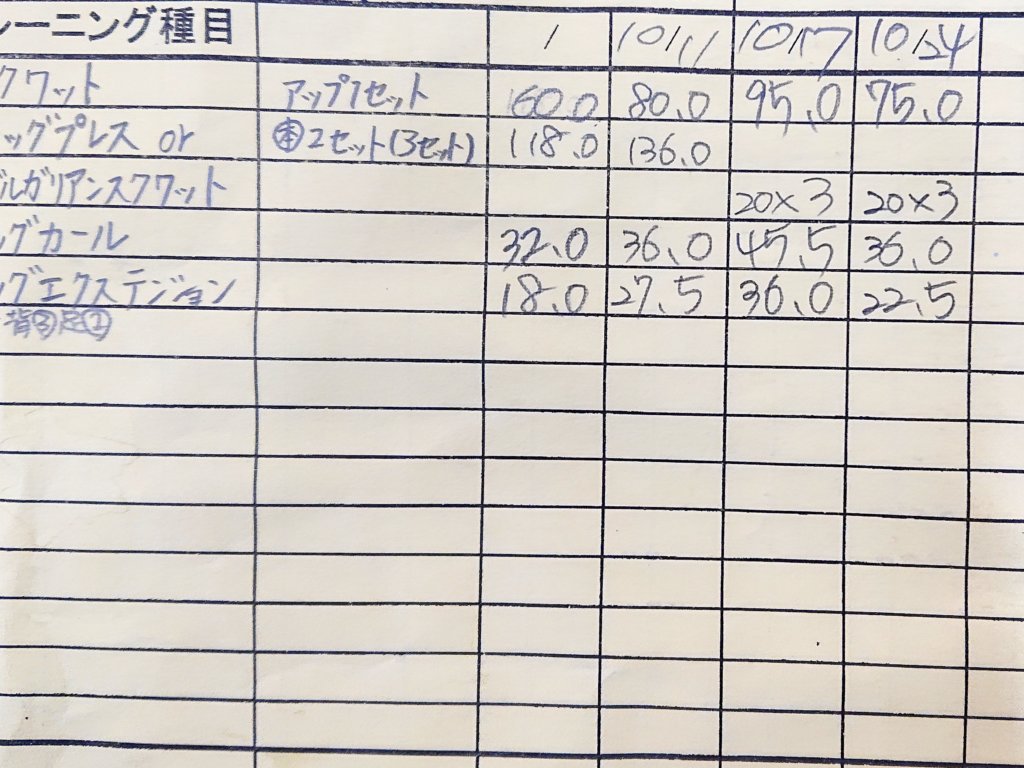 レーニング種目 / 10/11 10/17 10/24
クワット アップ1セット 60.0 80.0 95.0 75.0
ッグプレス or ㊍2セット(3セット) 118.0 136.0
ブルガリアンスクワット 20×3 20×3
ッグカール 32.0 36.0 45.5 36.0
ッグエクステンション 18.0 27.5 36.0 22.5
背③足①